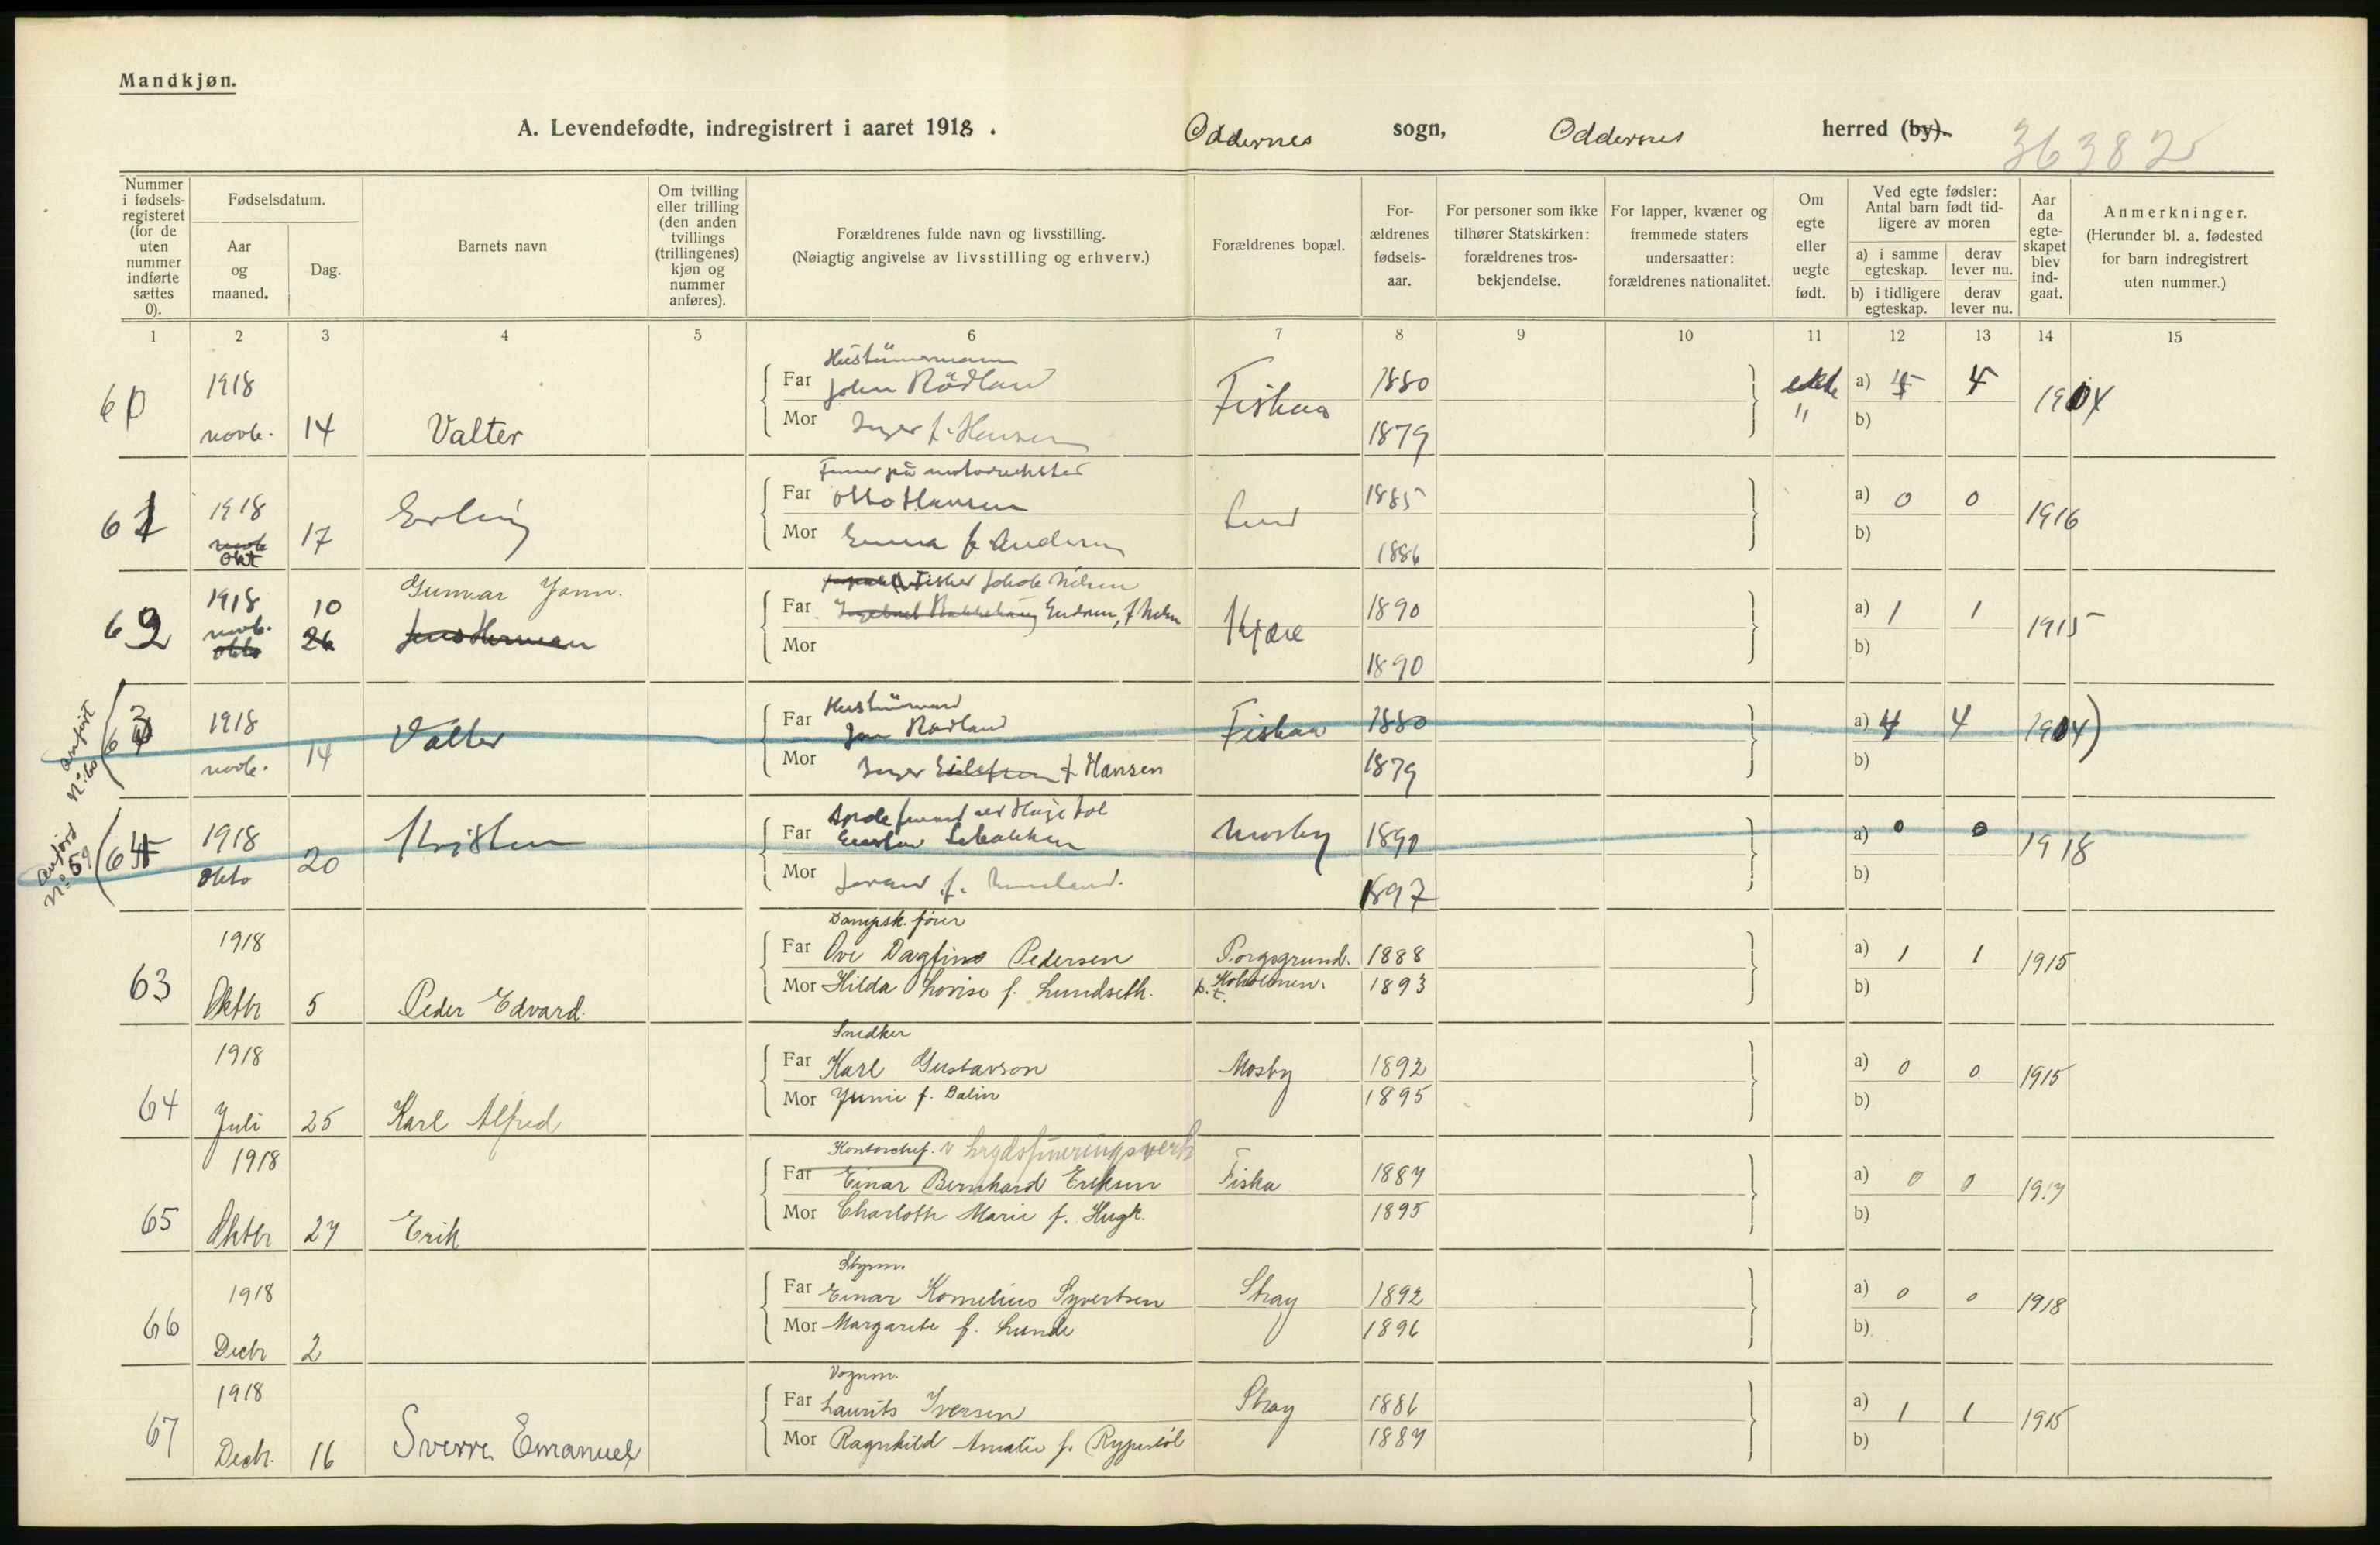 Mandkjøn.
A. Levendefødte, indregistrert i aaret 1918. Oddernes sogn, Oddernes herred (by).
36382
Nummer i fødsels-registeret (for de uten nummer indførte sættes 0).
Fødselsdatum.
Aar og maaned.
Dag.
Barnets navn
Om tvilling eller trilling (den anden tvillings (trillingenes) kjøn og nummer anføres).
Forældrenes fulde navn og livsstilling.
(Nøiagtig angivelse av livsstilling og erhverv.)
Forældrenes bopæl.
For-ældrenes fødsels-aar.
For personer som ikke tilhører Statskirken: forældrenes tros-bekjendelse.
For lapper, kvæner og fremmede staters undersaatter: forældrenes nationalitet.
Om egte eller uegte født.
Ved egte fødsler: Antal barn født tid-ligere av moren
a) i samme egteskap.
derav lever nu.
b) i tidligere egteskap.
derav lever nu.
Aar da egte-skapet blev ind-gaat.
Anmerkninger.
(Herunder bl. a. fødested for barn indregistrert uten nummer.)
1 2 3 4 5 6 7 8 9 10 11 12 13 14 15
60 1918 novb. 14 Valter
Far John Rödland Fiskaa 1880 ekte a) 4 1904
Mor Inger f. Hansen 1879 " b)
61 1918 novb Okt 17 Erling
Far Otto Hansen Lund 1885 a) 0 0 1916
Mor Emma f. Andersen 1886 b)
62 1918 novb. okto 10 26 Gunnar Jens Herman
Fisker Jakob Nilsen
Far Gudrun, f. Nilsen Kjære 1890 a) 1 1 1915
Mor 1890 b)
Anført No. 60
63 1918 novb. 14 Valter
Far Rødland Fiskaa 1880 a) 4 4 1904)
Mor Inger f Hansen 1879 b)
Anført No 59
64 1918 Okto 20 Kristen
Far Mosby 1890 a) 0 0 1918
Mor f. 1897 b)
Dampsk. fører
63 1918 Oktbr 5 Peder Edvard.
Far Ove Dagfino Pedersen Porsgrund. 1888 a) 1 1 1915
Mor Hilda Lovise f. Lundseth. 1893 b)
Snedker
64 1918 Juli 25 Karl Alfred
Far Karl Gustavson Mosby 1892 a) 0 0 1915
Mor Junie f. Dalin 1895 b)
Kontorchef. v
65 1918 Oktbr 27 Erik
Far Einar Bernhard Eriksen Fiska 1887 a) 0 0 1917
Mor Charlotte Marie f. Hugk. 1895 b)
Styrm.
66 1918 Decbr 2
Far Einar Kornelius Syvertsen Stray 1892 a) 0 0 1918
Mor Margarete f. Lunde 1896 b)
Vognm.
67 1918 Decbr. 16 Sverre Emanuel
Far Laurits Iversen Stray 1886 a) 1 1 1915
Mor Ragnhild Amalie f. 1887 b)